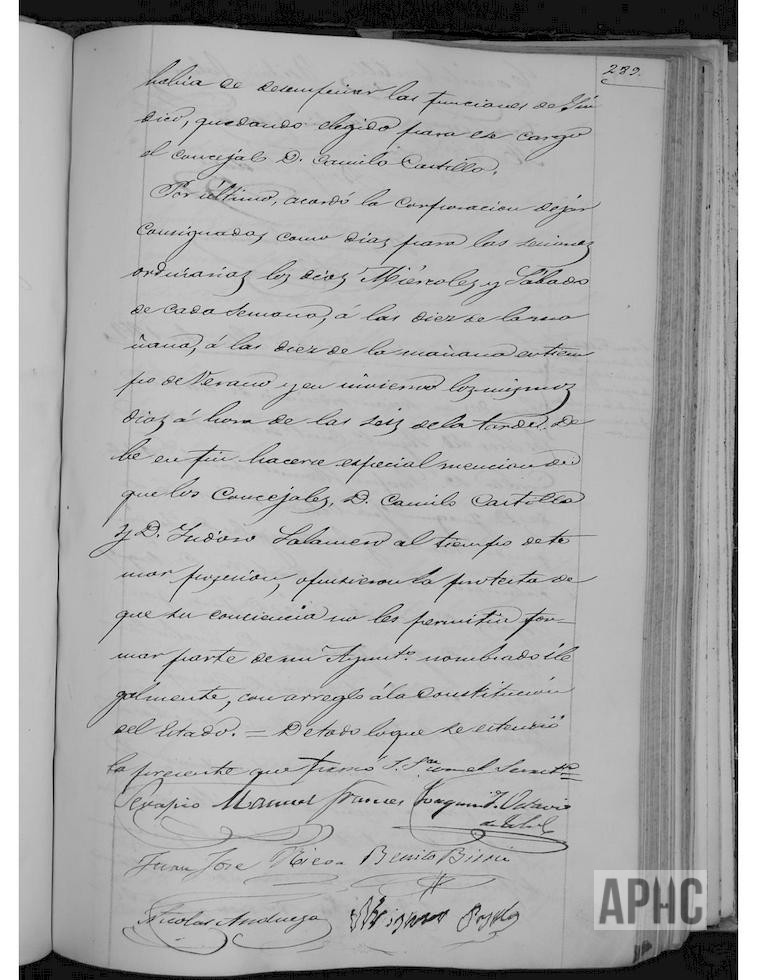 289.
habia de desempeñar las funciones de Sín
dico, quedando elegido para ese cargo
el concejal D. Camilo Castillo.
Por último, acordó la corporacion dejar
consignadas como dias para las sesiones
ordinarias los dias Miércoles y Sábado
de cada semana, á las diez de la ma
ñana, á las diez de la mañana en tiem
po de Verano y en invierno los mismos
dias á hora de las seis de la tarde. De
be en fin hacerse especial mencion de
que los Concejales, D. Camilo Castillo
y D. Isidoro Salamero al tiempo de to
mar posesion, opusieron la protesta de
que su conciencia no les permitia for-
mar parte de un Ayunto. nombrado ile
galmente, con arreglo á la Constitución
del Estado. = De todo lo que se estendió
la presente que firmó S. Sria con el Secreto =
Serapio Manuel Frances Joaquin
Juan José Benito
Nicolas Anduega
APHC